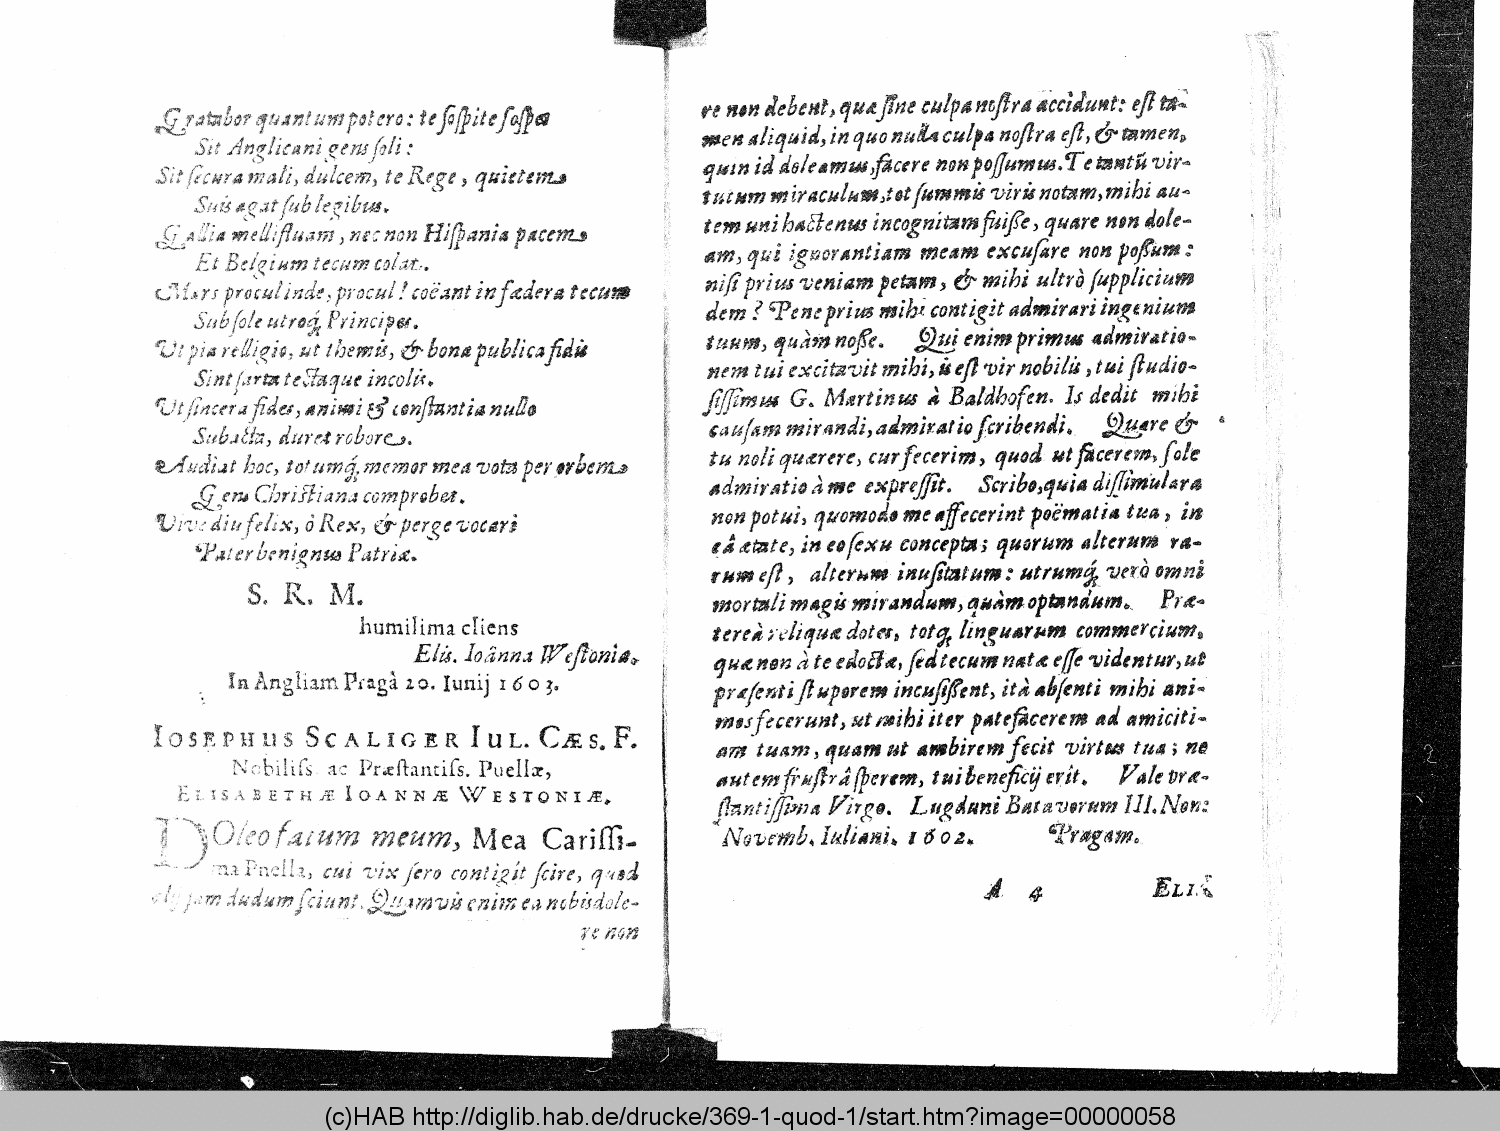 Gratabor quantum potero: te sospite sospes
Sit Anglicani gens soli:
Sit secura mali, dulcem, te Rege, quietem
Suis agat sub legibus.
Gallia mellifluam, nec non Hispania pacem
Et Belgium tecum colat.
Mars procul inde, procul! coëant in fœdera tecum
Sub sole utroq́; Principes.
Ut pia relligio, ut themis, & bona publica fidis
Sint sarta tectaque incolis.
Ut sincera fides, animi & constantia nullo
Subacta, duret robore.
Audiat hoc, totumq́; memor mea vota per orbem
Gens Christiana comprobet.
Vive diu felix, ò Rex, & perge vocari
Pater benignus Patriæ.
S. R. M.
humilima cliens
Elis. Ioânna Westonia.
In Angliam Pragâ 20. Iunij 1603.
IOSEPHUS SCALIGER IUL. CÆS. F.
Nobiliss. ac Præstantiss. Puellæ,
ELISABETHÆ IOANNÆ WESTONIÆ.
DOleo fatum meum, Mea Carissi-
ma Puella, cui vix sero contigit scire, quod
alij jam dudum sciunt. Quamvis enim ea nobis dole-
re non
re non debent, quæ sine culpa nostra accidunt: est ta-
men aliquid, in quo nulla culpa nostra est, & tamen,
quin id doleamus, facere non possumus. Te tantũ vir-
tutum miraculum, tot summis viris notam, mihi au-
tem uni hactenus incognitam fuisse, quare non dole-
am, qui ignorantiam meam excusare non possum:
nisi prius veniam petam, & mihi ultrò supplicium
dem? Pene prius mihi contigit admirari ingenium
tuum, quàm nosse. Qui enim primus admiratio-
nem tui excitavit mihi, is est vir nobilis, tui studio-
sissimus G. Martinus à Baldhofen. Is dedit mihi
causam mirandi, admiratio scribendi. Quare &
tu noli quærere, cur fecerim, quod ut facerem, sole
admiratio à me expressit. Scribo, quia dissimulara
non potui, quomodo me affecerint poëmatia tua, in
eâ ætate, in eo sexu concepta; quorum alterum ra-
rum est, alterum inusitatum: utrumq́; verò omni
mortali magis mirandum, quàm optandum. Præ-
tereà reliquæ dotes, totq́; linguarum commercium,
quæ non à te edoctæ, sed tecum natæ esse videntur, ut
præsenti stuporem incusissent, ità absenti mihi ani-
mos fecerunt, ut mihi iter patefacerem ad amiciti-
am tuam, quam ut ambirem fecit virtus tua; ne
autem frustrâ sperem, tui beneficij erit. Vale præ-
stantissima Virgo. Lugduni Batavorum III. Non:
Novemb. Iuliani. 1602. Pragam.
A 4 ELIS.
(c)HAB http://diglib.hab.de/drucke/369-1-quod-1/start.htm?image=00000058